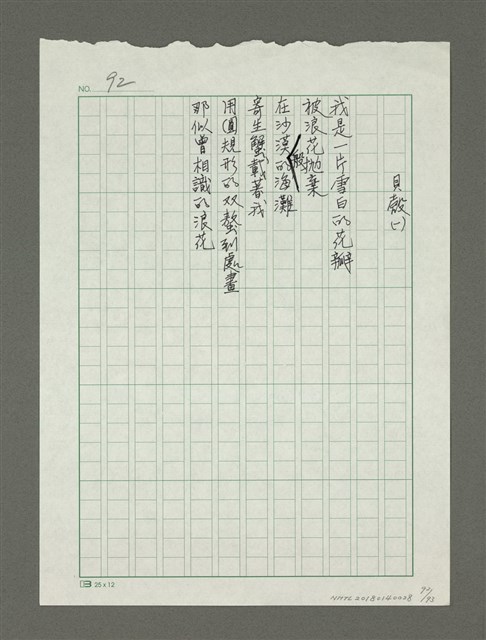 NO. 92
貝殼(一)
我是一片雪白的花瓣
被浪花拋棄
在沙漠般的海灘
寄生蟹載著我
用圓規形的双螯到處畫
那似曾相識的浪花
25 x 12
NMTL20180140008 92/93